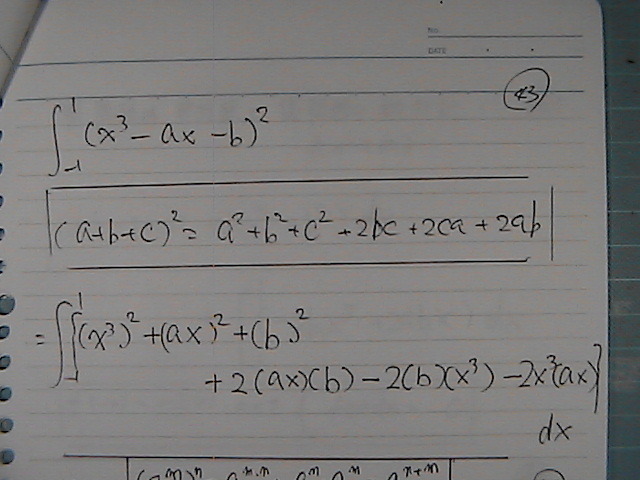 No.
DATE
43
∫₋₁¹ (x³ - ax - b)²
(a+b+c)² = a² + b² + c² + 2bc + 2ca + 2ab
= ∫₋₁¹ {(x³)² + (ax)² + (b)²
+ 2(ax)(b) - 2(b)(x³) - 2x³(ax)}
dx